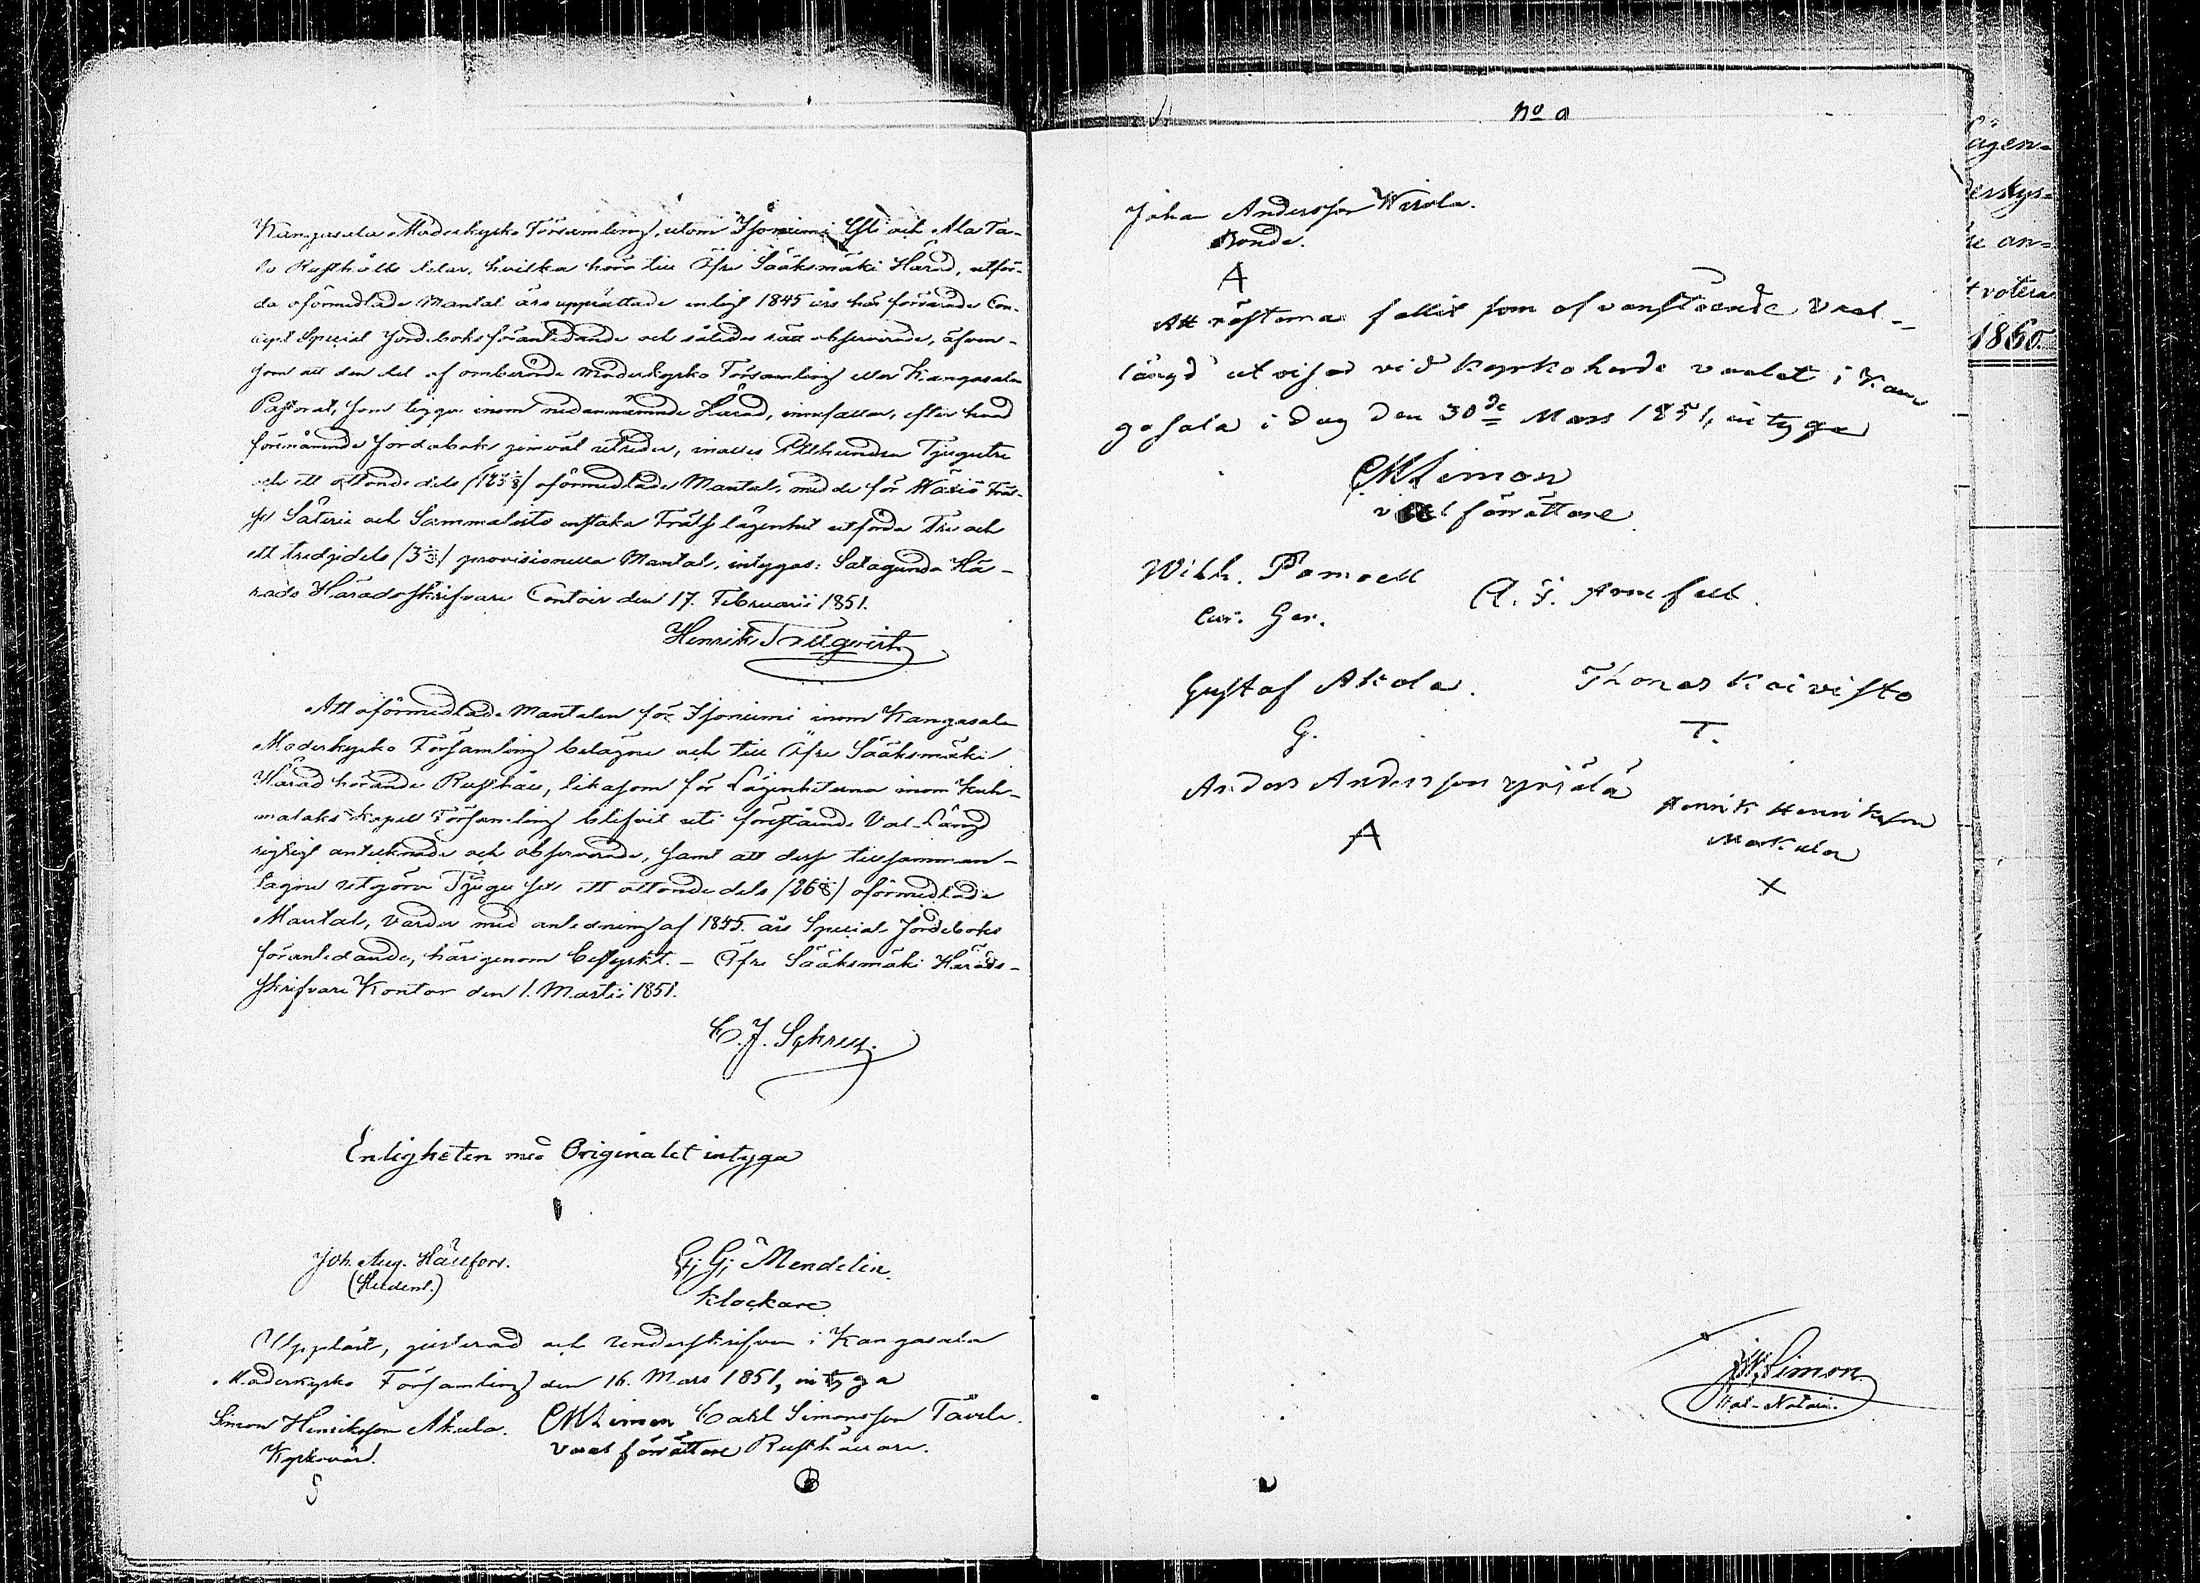 Kangasala Moderkyrko Församling, utom Isoniemi Yli och Ala Ta-
lo Rusthålls delar, hvilka höra till Öfre Sääksmäki Härad, utför-
da oförmedlade Mantal äro upprättade enligt 1845 års här förvarade Con-
cept Special Jordeboks föranledande och således rätt observerade, äfven-
som att den del af omberörde Moderkyrko Församling eller Kangasala
Pastorat, som ligger inom nedannämnde Härad, innefattar, efter hvad
förenämnde Jordebok jemväl utreder, inalles Etthundra Tjugutre
och ett åttondedels /123 1/8/ oförmedlade Mantal, med de för Wääksö Fräl-
se Säteri och Sammalisto enstaka Frälse lägenhet utförda Tre och
ett tredjedels /3 1/3/ provisionella Mantal, intygas: Satagunda Hä-
rads Häradsskrifvare Contoir den 17. Februarii 1851.
Henrik Trллqvist
Att oförmedlade Mantalen för Isoniemi inom Kangasala
Moderkyrko Församling belägne och till Öfre Sääksmäki
Härad hörande Rusthåll, likasom för Lägenheterna inom Kuh-
malaks Kapell Församling blifvit uti förestående Val-Längd
rigtigt antecknade och observerade, samt att desse tillsamman-
tagne utgöra Tjugu sex ett åttondedels /26 1/8/ oförmedlade
Mantal, varder med anledning af 1845. års Special Jordeboks
föranledande, härigenom bestyrkt. – Öfre Sääksmäki Härads-
skrifvare Kontor den 1. Martii 1851.
C. J.
Enligheten med Originalet intyga
Joh. Aug. Hällfors. G; G; Mendelin.
(Student.) Klockare
Uppläst, justerad och underskrifven i Kangasala
Moderkyrko Församling den 16. Mars 1851, intyga
Simon Henriksson Äkula. CMLimon Carl Simonsson Tavela.
Kyrkovärd. Valförrättare Rusthållare.
S
No
Johan Andersson Wirola.
Bonde.
A
Att rösterna fallit som ofvanstående Val-
längd utvisad vid kyrkoherde valet i Kan
gasala i dag den 30de Mars 1851, intyga
CMLimon
valförrättare
Wilh. Pomoell A. F. Armfelt.
Cur. Ger.
Gustaf Akola. Thomas Koivisto
G. T.
Anders Andersson Yrjälä Henrik Henriksson
A Markula
X
Limon.
Val-Notari.
ägen-
erkyr-
re an-
t votera
1860.